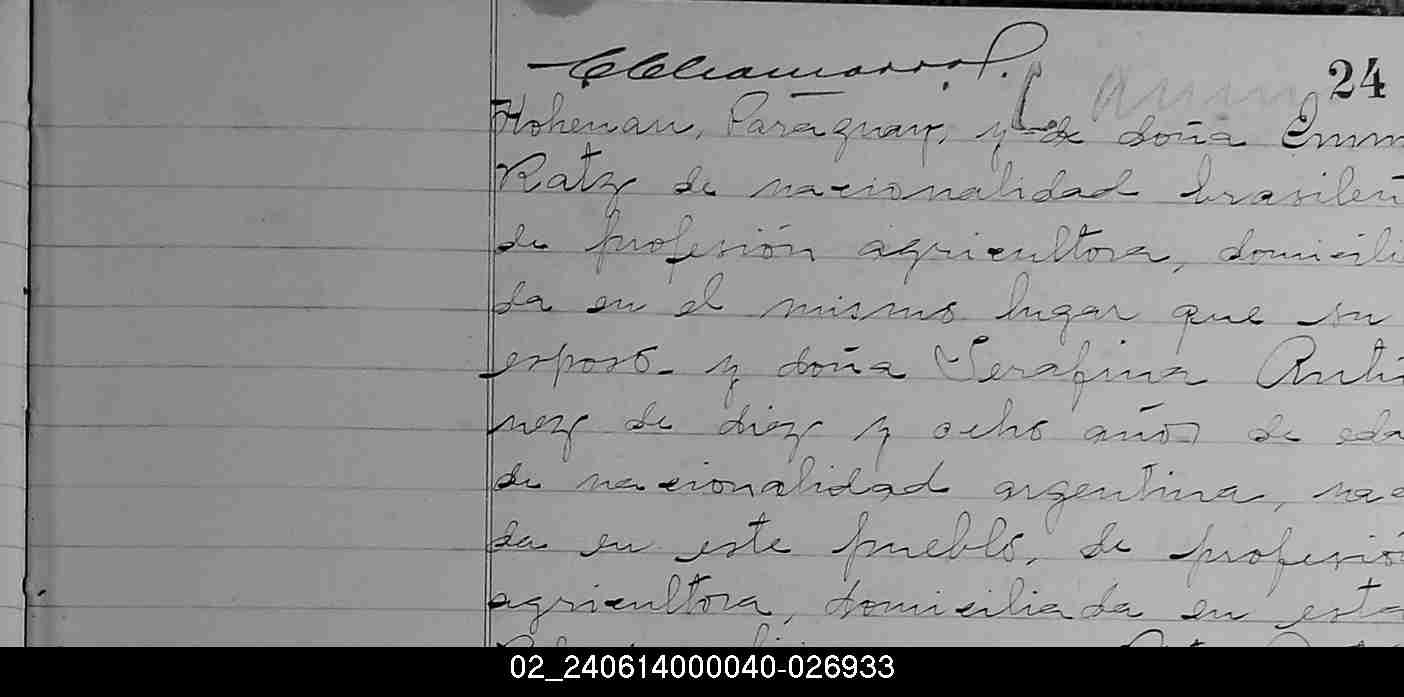 24
Hohenau, Paraguay, y de doña Emm
Ratz de nacionalidad brasileñ
de profesión agricultora, domicili
da en el mismo lugar que su
esposo y doña Serafina Anti
nez de diez y ocho años de eda
de nacionalidad argentina, nac
da en este pueblo, de profesió
agricultora, domiciliada en esta
02_240614000040-026933